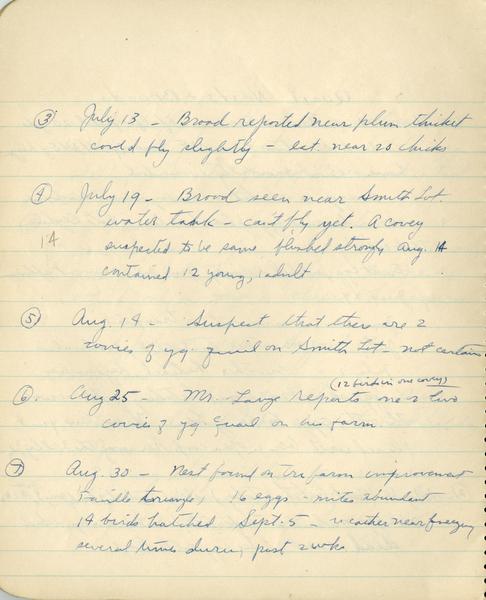 ③ July 13 - Brood reported near plum thicket
could fly slightly - est. near 20 chicks
④ July 19 - Brood seen near Smith Lot.
water tank - can't fly yet. A covey
14
suspected to be same flushed strongly Aug. 14
contained 12 young, 1 adult
⑤ Aug. 14 - Suspect that there are 2
covies of yg quail on Smith Lot - not certain
(12 birds in one covey)
⑥. Aug 25 - Mr. Lange reports one - two
covies of yg quail on his farm.
⑦ Aug. 30 - Nest found on farm improvement
16 eggs - mites abundant
14 birds hatched Sept. 5 - weather near freezing
several times during past 2 wks